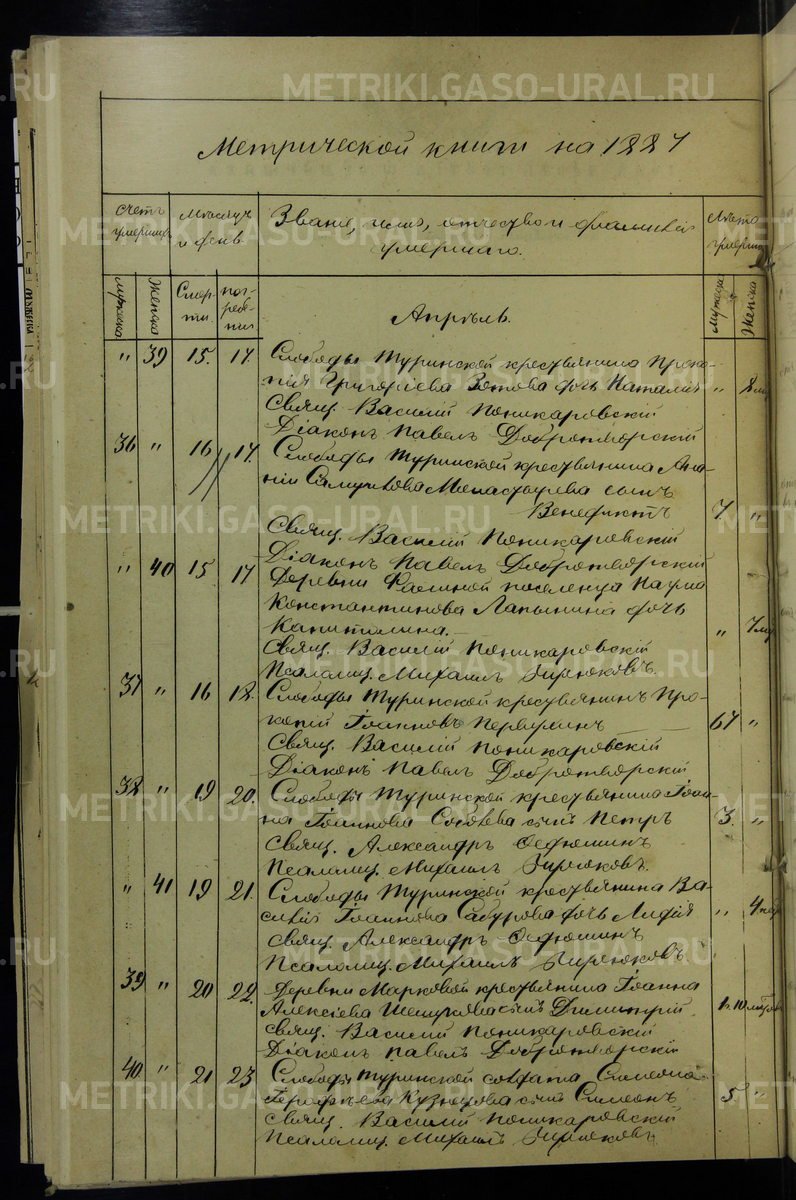 Метрической книги на 1887
Счетъ умершихъ
Мѣсяцъ и день
Званіе, имя, отчество и фамилія умершаго.
Лѣта умершаго
мужеска
Женска
Смерти.
погребенія
Апрѣль.
мужеска
Женска
" 39 15. 17. Слободы Туринской крестьянина Проко-
пія Григоріева Зотова дочь Наталія "
Свящ. Василій Поникаровскій
Діаконъ Павелъ Добротворскій
36 " 16 17. Слободы Туринской крестьянина Ана-
ніи сынъ
Венедиктъ 7 "
Свящ. Василій Поникаровскій
Діаконъ Павелъ Добротворскій
" 40 15 17 Деревни поселенца Наума
Константинова Лапынина дочь
Капитолина. "
Свящ. Василій Поникаровскій
Псаломщ. Михаилъ
37 " 16 18. Слободы Туринской крестьянинъ Про-
копій Іоанновъ Первушинъ 67 "
Свящ. Василій Поникаровскій
Діаконъ Павелъ Добротворскій
38 " 19 20. Слободы Туринской крестьянина Іоан-
на Іоаннова сынъ Петръ 3. "
Свящ. Александръ
Псаломщ. Михаилъ
" 41 19 21. Слободы Туринской крестьянина Ва-
силія Іоаннова Сабурова дочь Лидія "
Свящ. Александръ
Псаломщ. Михаилъ
39 " 20 22. Деревни Марковой крестьянина Іоанна
Алексіева сынъ Димитрій
Свящ. Василій Поникаровскій
Діаконъ Павелъ Добротворскій
40 " 21 23 Слободы Туринской солдата Симеона
Кузнецова сынъ Симеонъ 5 "
Свящ. Василій Поникаровскій
Псаломщ. Михаилъ
METRIKI.GASO-URAL.RU